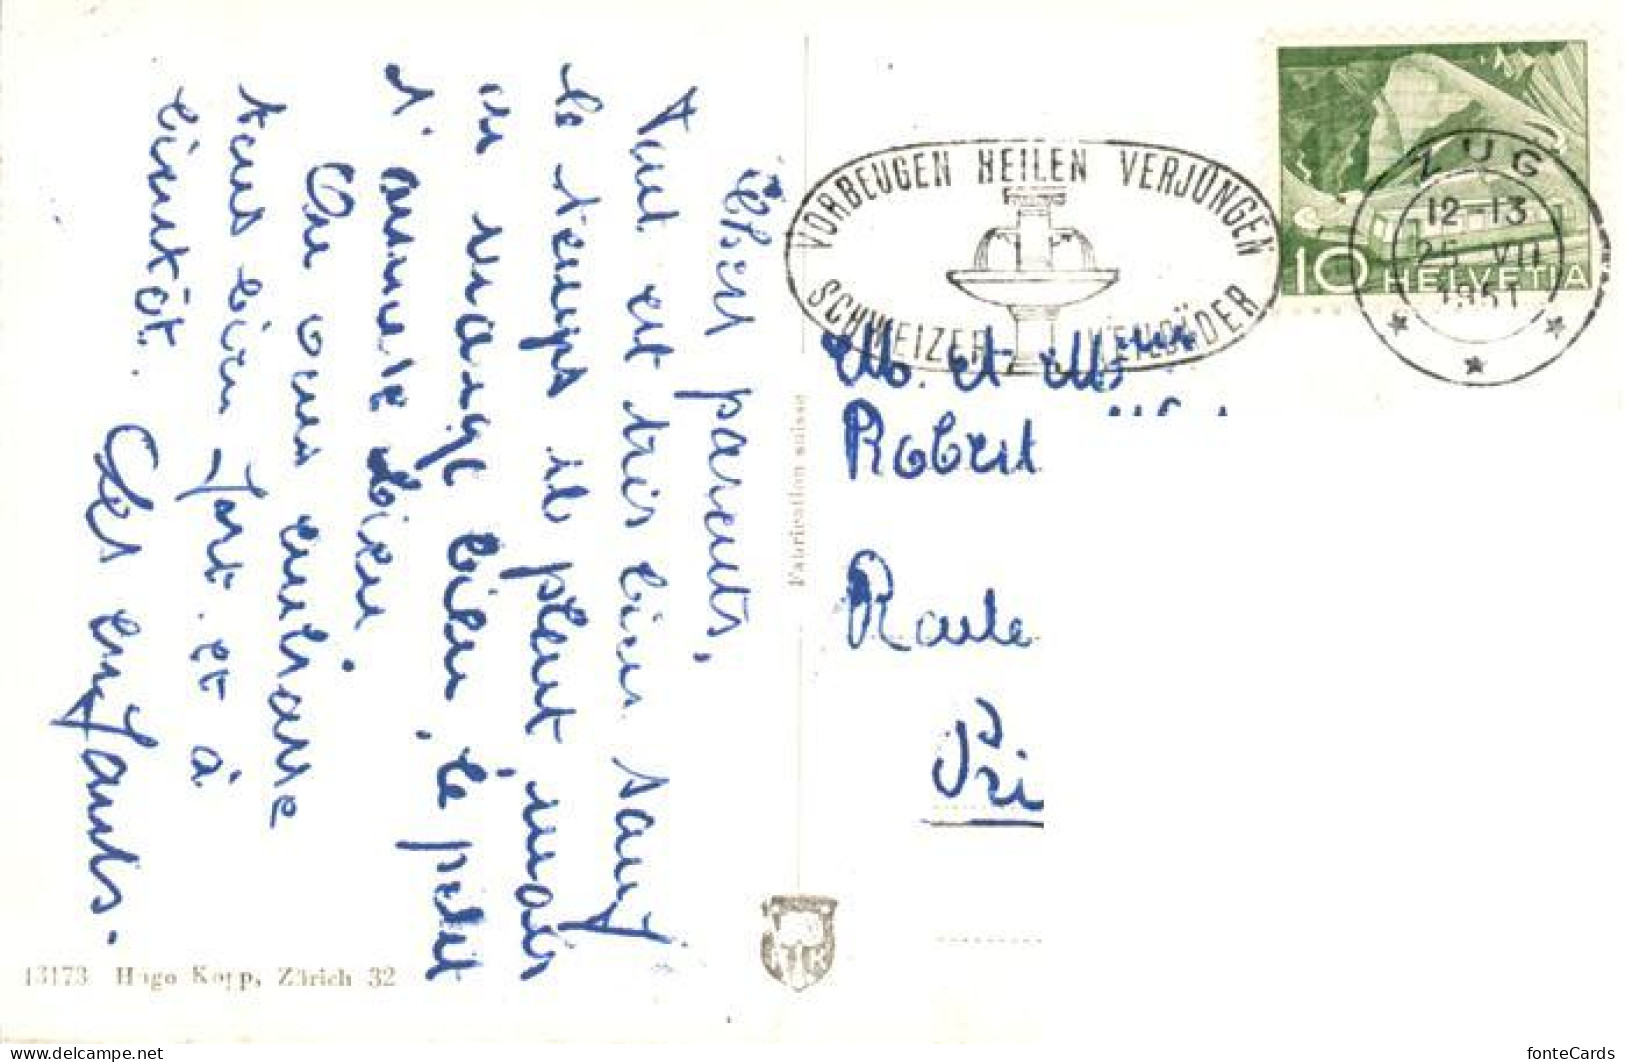 Chers parents,
Tout est très bien sauf
le temps il pleut, mais
on mange bien, le petit
s'amuse bien
On vous embrasse
tous bien fort. et à
bientôt.
Les enfants.
Fabrication suisse
13173 Hugo Kopp, Zürich 32
HK
VORBEUGEN HEILEN VERJÜNGEN
SCHWEIZER HEILBÄDER
ZUG
12-13
25 VII
1951
10 HELVETIA
M. et Mme
Robert
Route
Pri
www.delcampe.net
fonteCards